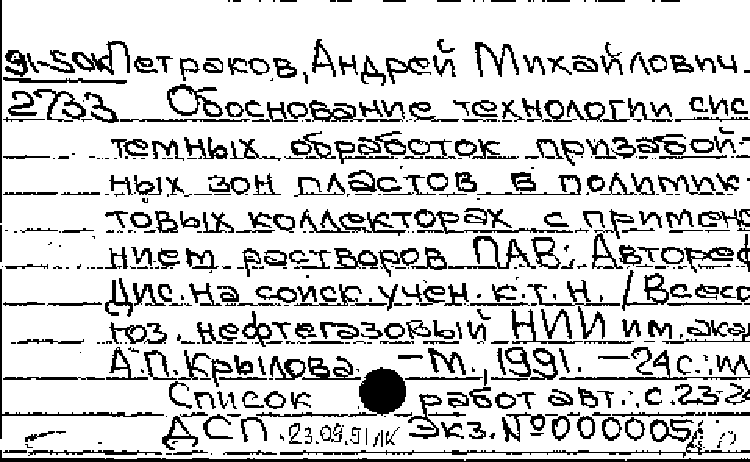 91-50к Петраков, Андрей Михайлович.
2733 Обоснование технологии сис
темных обработок призабой-
ных зон пластов в политик
товых коллекторах с примене
нием растворов ПАВ: Автореф
Дис. на соиск. учен. к.т.н. / Всесо
юз. нефтегазовый НИИ им. ака
А.П. Крылова. – М., 1991. – 24 с.: ил
Список работ авт.: с. 23-24
ДСП. 23.09.91 Экз. № 0000051